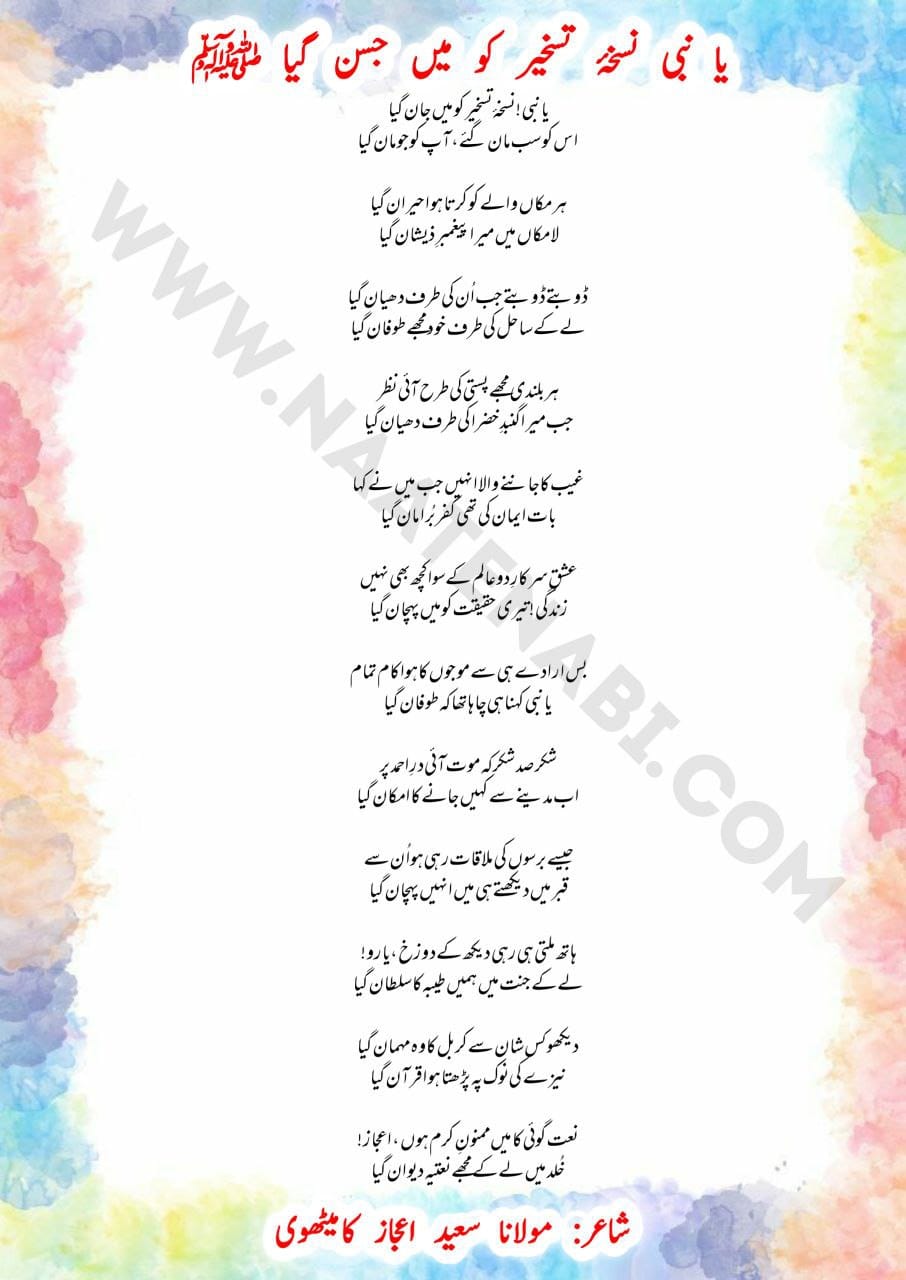 یا نبی نسخۂ تسخیر کو میں جسن گیا ﷺ
یا نبی! نسخۂ تسخیر کو میں جان گیا
اس کو سب مان گئے، آپ کو جو مان گیا
ہر مکاں والے کو کرتا ہوا حیران گیا
لامکاں میں میرا پیغمبرِ ذیشان گیا
ڈوبتے ڈوبتے جب اُن کی طرف دھیان گیا
لے کے ساحل کی طرف خود مجھے طوفان گیا
ہر بلندی مجھے پستی کی طرح آئی نظر
جب میرا گنبدِ خضرا کی طرف دھیان گیا
غیب کا جاننے والا انہیں جب میں نے کہا
بات ایمان کی تھی کفر بُرا مان گیا
عشقِ سرکارِ دو عالم کے سوا کچھ بھی نہیں
زندگی! تیری حقیقت کو میں پہچان گیا
بس ارادے ہی سے موجوں کا ہوا کام تمام
یا نبی کہنا ہی چاہا تھا کہ طوفان گیا
شکر صد شکر کہ موت آئی درِ احمد پر
اب مدینے سے کہیں جانے کا امکان گیا
جیسے برسوں کی ملاقات رہی ہو اُن سے
قبر میں دیکھتے ہی میں انہیں پہچان گیا
ہاتھ ملتی ہی رہی دیکھ کے دوزخ، یارو!
لے کے جنت میں ہمیں طیبہ کا سلطان گیا
دیکھو کس شان سے کربل کا وہ مہمان گیا
نیزے کی نوک پہ پڑھتا ہوا قرآن گیا
نعت گوئی کا میں ممنونِ کرم ہوں، اعجاز!
خُلد میں لے کے مجھے نعتیہ دیوان گیا
شاعر: مولانا سعید اعجاز کامیٹھوی
WWW.NAATENABI.COM